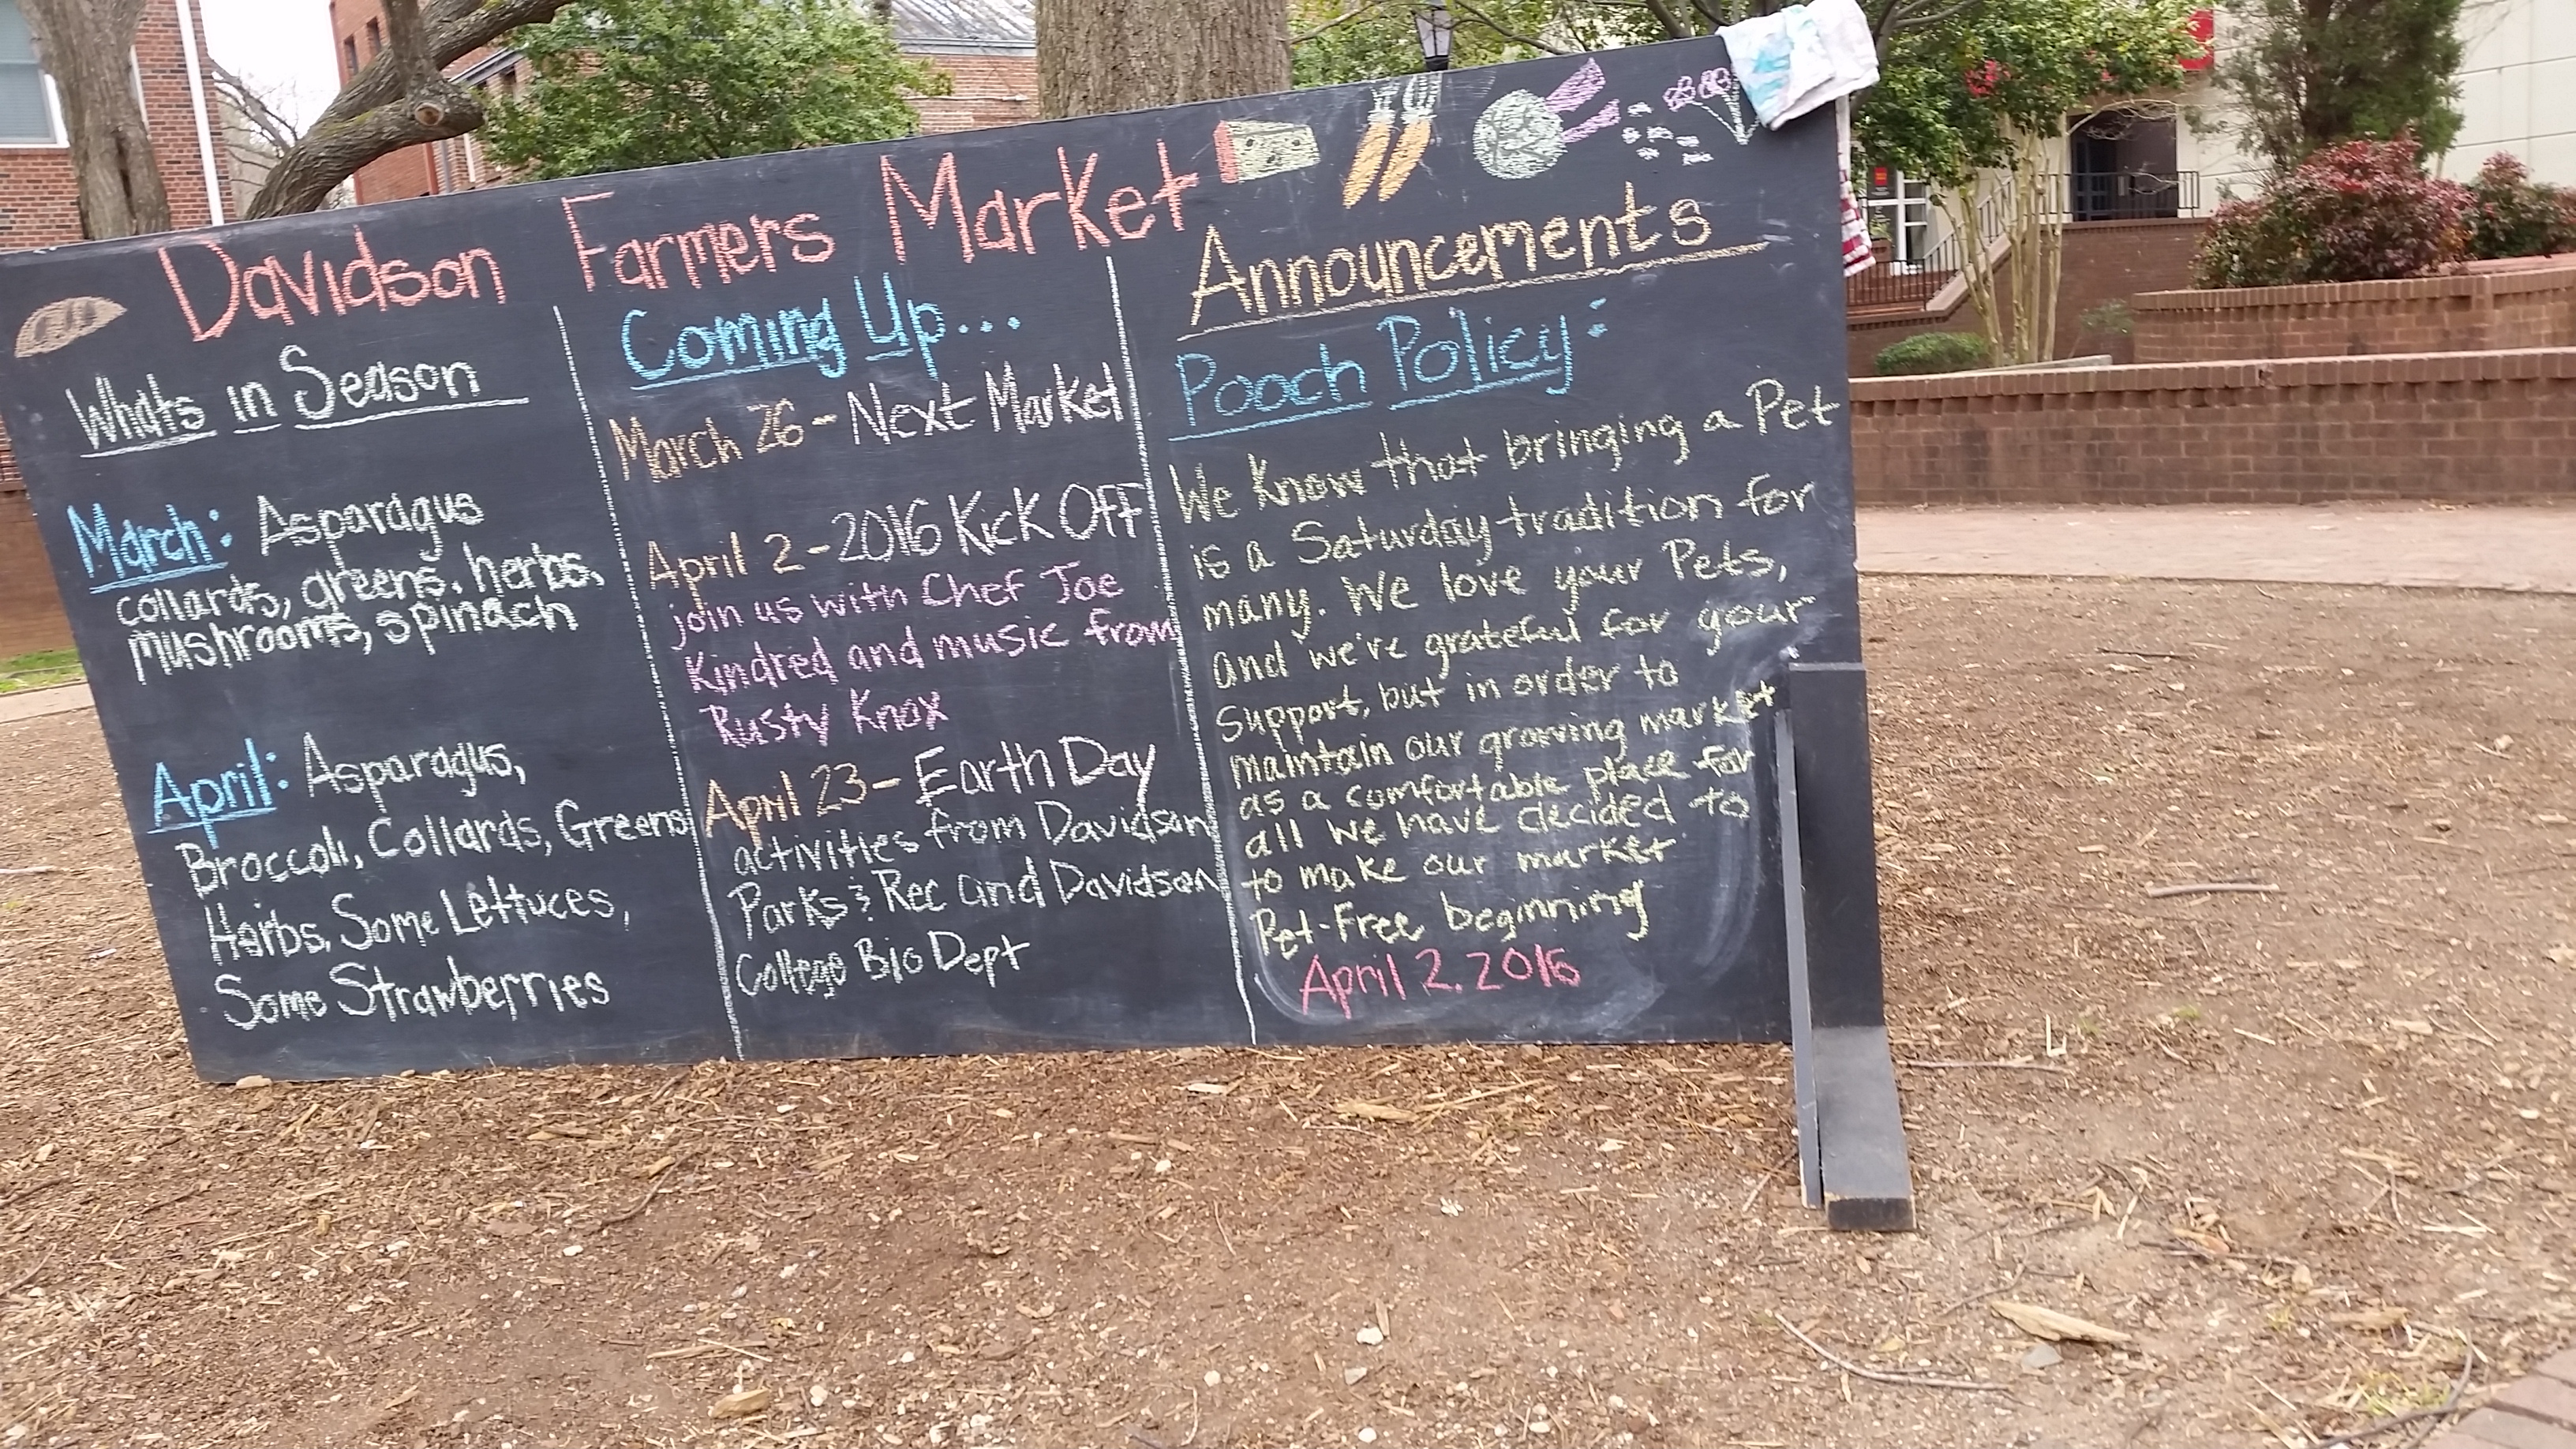 Davidson Farmers Market
Whats in Season
March: Asparagus
collards, greens, herbs,
mushrooms, spinach
April: Asparagus,
Broccoli, Collards, Greens
Herbs, Some Lettuces,
Some Strawberries
Coming Up...
March 26 - Next Market
April 2 - 2016 Kick Off
join us with Chef Joe
Kindred and music from
Rusty Knox
April 23 - Earth Day
activities from Davidson
Parks & Rec and Davidson
College Bio Dept
Announcements
Pooch Policy:
We Know that bringing a Pet
is a Saturday tradition for
many. We love your Pets,
and we're grateful for your
Support, but in order to
maintain our growing market
as a comfortable place for
all we have decided to
to make our market
Pet-Free beginning
April 2. 2016